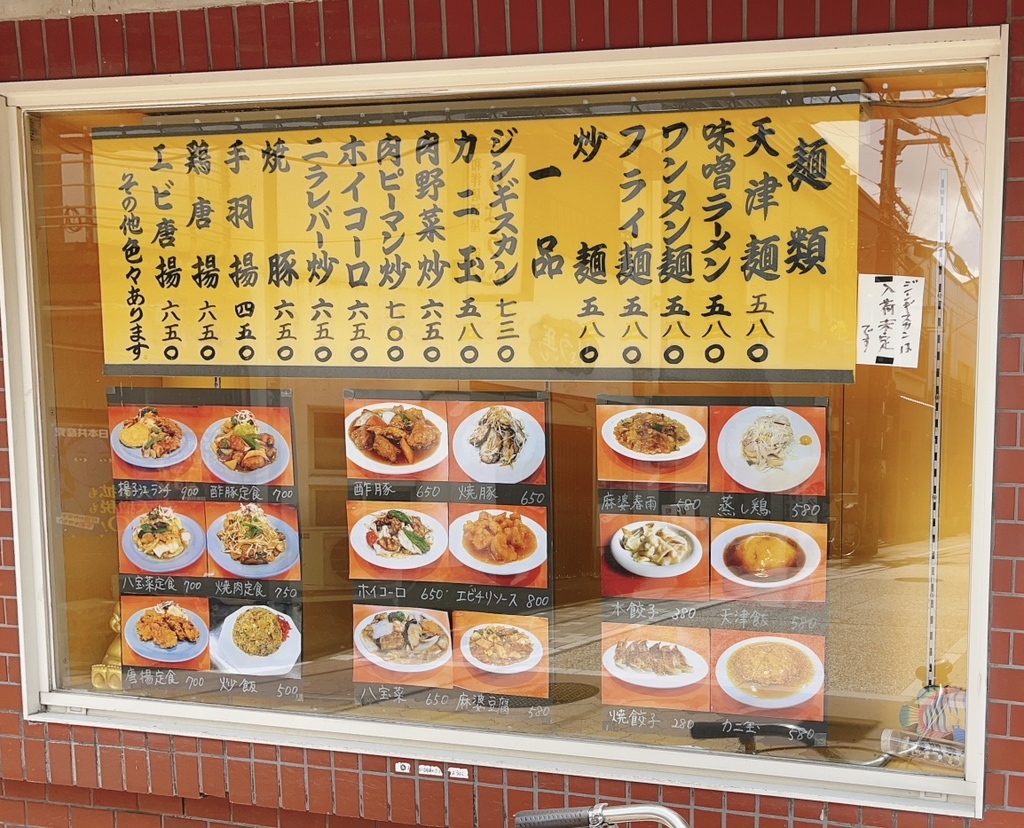 麺類
天津麺 五八〇
味噌ラーメン 五八〇
ワンタン麺 五八〇
フライ麺 五八〇
炒麺 五八〇
一品
ジンギスカン 七三〇
カニ玉 五八〇
肉野菜炒 六五〇
肉ピーマン炒 七〇〇
ホイコーロ 六五〇
ニラレバー炒 六五〇
焼豚 六五〇
手羽揚 四五〇
鶏唐揚 六五〇
エビ唐揚 六五〇
その他色々あります
ジンギスカンは
入荷未定
です
揚子江ランチ 900
酢豚定食 700
八宝菜定食 700
焼肉定食 750
唐揚定食 700
炒飯 500
酢豚 650
焼豚 650
ホイコーロ 650
エビチリソース 800
八宝菜 650
麻婆豆腐 580
麻婆春雨 580
蒸し鶏 580
水餃子 380
天津飯 580
焼餃子 280
カニ玉 580